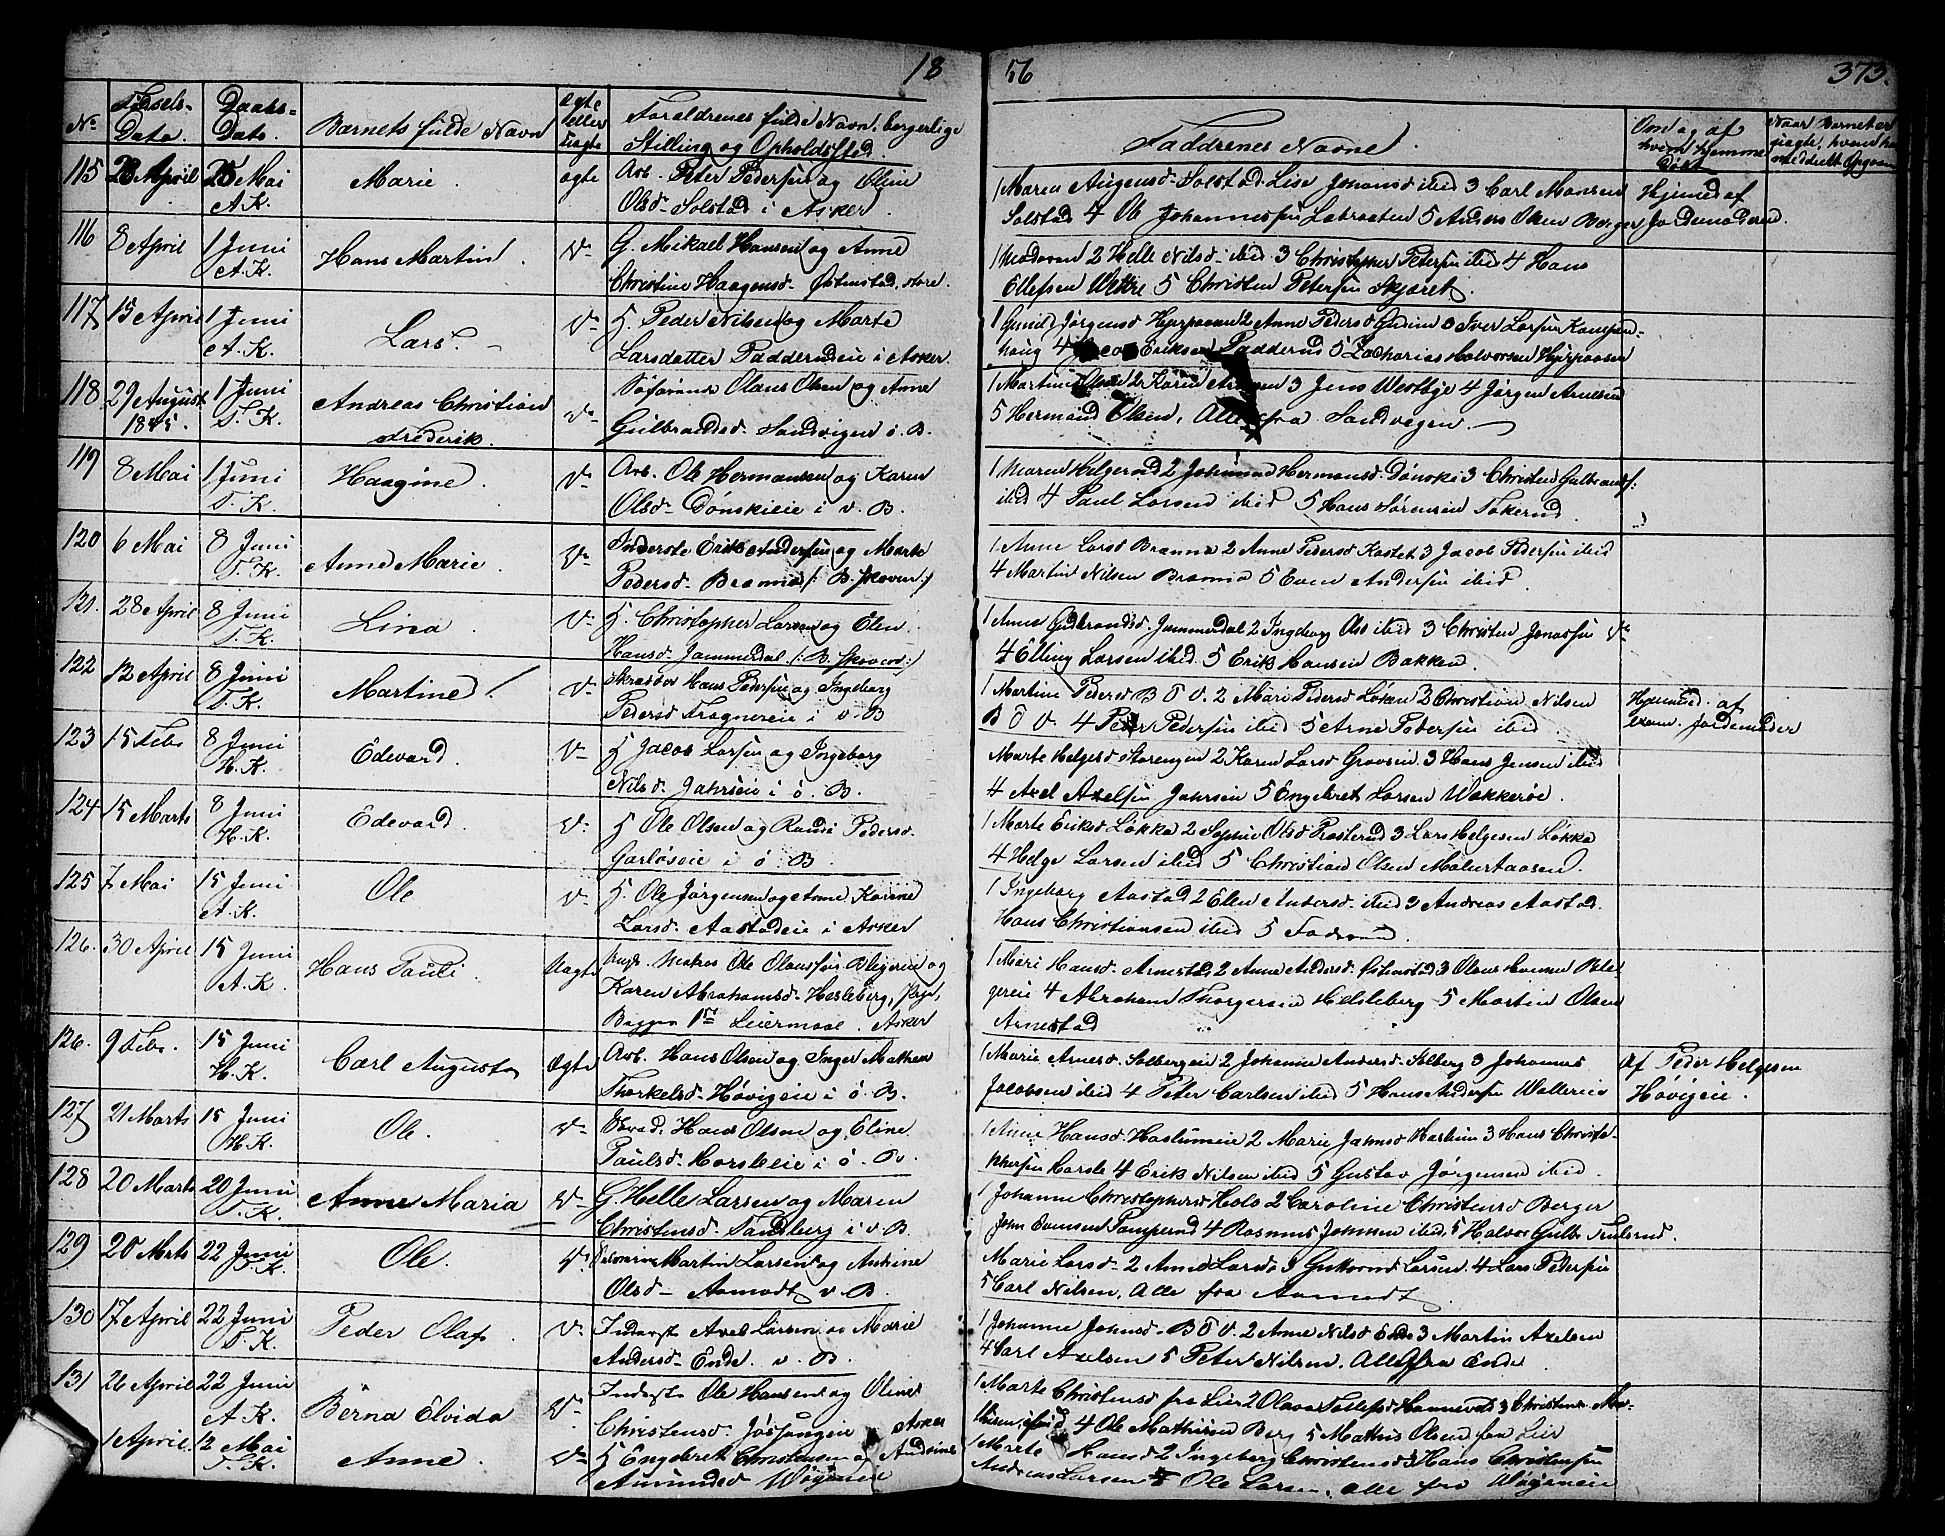 18 56 373.
No Fødsels-Dato. Daabs-Dato. Barnets fulde Navn ægte eller uægte Forældrenes fulde Navn, borgerlige Stilling og Opholdssted. Faddrenes Navne. Om og af hvem hjemme Døbt
115 28 April 25 Mai A. K. Marie. ægte Arb. Peter Pedersen og Oline
Olsd. Solstad i Asker.
1 Maren Augensd. Solstad Lise Johansd ibid 3 Carl Monsen
Solstad 4 Ole Johannessen Labraaten 5 Anders Olsen Berger
Hjemmed af Jordemoderen.
116 8 April 1 Juni A. K. Hans Martin. do G. Mikael Hansen og Anne
Christine Haagensd. Østenstad, store.
1 Moderen 2 Helle Nilsd ibid 3 Christopher Petersen ibid 4 Hans
Ellefsen Wettre 5 Christen Petersen Skjæret.
117 15 April 1 Juni A. K. Lars. do H. Peder Nilsen og Marte
Larsdatter Padderudeie i Asker.
1 Gunild Jørgensd Hjerpaasen 2 Anne Pedersd Guiim 3 Iver Larsen Kampen-
haug 4 Jacob Eriksen Padderud 5 Zacharias Halvorsen Hjerpaasen
118 29 August 1845. 1 Juni T. K. Andreas Christian Frederik. do Søfarende Olaus Olsen og Anne
Gulbrandsd. Sandvigen ø. B.
1 Martin Olsen 2 Karen Arnesen 3 Jens Westbye 4 Jørgen Arnesen
5 Hermand Olsen, Alle fra Sandvegen.
119 8 Mai 1 Juni T. K. Haagine. do Arb. Ole Hermansen og Karen
Olsd. Dønskieie i v. B.
1 Maren Helgerud 2 Johanne Hermansd. Dønski 3 Christen Gulbrands:
ibid 4 Paul Larsen ibid 5 Hans Sørensen Tokerud.
120 6 Mai 8 Juni T. K. Anne Marie. do Inderste Erik Andersen og Marte
Pedersd. Bræmna /: B. Skoven :/
1 Anne Larsd Bræmna 2 Anne Pedersd Kastet 3 Jacob Pedersen ibid
4 Martin Nilsen Bræmna 5 Even Andersen ibid.
121. 28 April 8 Juni T. K. Lina. do H. Christopher Larsen og Elen
Hansd. Jammerdal /: B. Skoven :/
1 Anne Gulbrandsd. Jammerdal 2 Ingeborg Olsd ibid 3 Christen Jonassen do
4 Elling Larsen ibid. 5 Erik Hansen Bakken.
122 12 April 8 Juni T. K. Martine. do Skrædder Hans Pedersen og Ingeborg
Pedersd Fragnereie i v. B
1 Martine Pedersd B o V. 2 Mari Pedersd Løken 3 Christian Nilsen
B o V. 4 Peder Pedersen ibid 5 Arne Pedersen ibid.
Hjemmed. af exam. Jordemoder
123 15 Febr 8 Juni H. K. Edevard. do H Jacob Larsen og Ingeborg
Nilsd. Jahrseie i ø. B.
Marte Helgesd Storengen 2 Karen Larsd Gravsen 3 Hans Jensen ibid
4 Axel Axelsen Jahrsen 5 Engebret Larsen Wækkerøe.
124 15 Marts 8 Juni H. K. Edevard. do H Ole Olsen og Randi Pedersd.
Garløseie i ø. B.
1 Marte Eriksd Løkka 2 Sophie Olsd Prosterud 3 Lars Helgesen Løkka
4 Helge Larsen ibid 5 Christian Olsen Malurtaasen.
125 7 Mai 15 Juni A. K. Ole do H. Ole Jørgensen og Anne Karine
Larsd. Aastadeie i Asker
1 Ingeborg Aastad 2 Elen Andersd. ibid 3 Andreas Aastad.
Hans Christiansen ibid 5 Faderen.
126. 30 April 15 Juni A. K. Hans Pauli. Uægte Ungk. Matros Ole Olaussen Blegeeie og
Karen Abrahamsd. Hesleberg, Pige,
Begges 1ste Leiermaal. Asker
1 Mari Hansd. Arnestad 2 Anne Andersd. Østenstad 3 Olaus Hansen Ble-
gereie 4 Abraham Thorgersen Helsleberg 5 Martin Olsen
Arnestad
126. 9 Febr. 15 Juni H. K. Carl August. Ægte Arb. Hans Olsen og Inger Mathea
Thorkelsd. Høvigeie i ø. B.
1 Marie Arnesd. Solbergeie 2 Johanne Andersd. Solberg 3 Johannes
Jacobsen ibid 4 Peter Carlsen ibid 5 Hans Andersen Wallereie
Af Peder Helgesen Høvigeie.
127 21 Marts 15 Juni H. K. Ole. do Hans Olsen og Eline
Paulsd. Horsleeie i ø. B.
1 Anne Hansd. Haslumeie 2 Marie Jahnsd Haslum 3 Hans Christo-
phersen Harsle 4 Erik Nilsen ibid 5 Gustav Jørgensen ibid.
128 20 Marts 20 Juni T. K. Anne Maria do G. Helle Larsen og Maren
Christensd. Tandberg i v. B.
1 Johanne Christophersd Hals 2 Caroline Christensd Berger
John Evensen Tamperud 4 Rasmus Johnsen ibid. 5 Halvor Gulbr.
129 20 Marts 22 Juni T. K. Ole. do Martin Larsen og Anthine
Olsd. Aamodt v. B.
Marie Larsd. 2 Anne Larsd 3 Gulbrand Larsen 4 Lars Pedersen
5 Carl Nilsen, Alle fra Aamodt.
130 17 April 22 Juni T. K. Peder Olaf. do Inderste Axel Larsen og Marie
Andersd. Ende. v. B.
1 Johanne Johnsd. B o V. 2 Anne Nilsd Ende 3 Martin Axelsen
4 Carl Axelsen 5 Peter Nilsen. Alle fra Ende.
131 26 April 22 Juni A. K. Berna Elvida do Inderste Ole Hansen og Oline
Christensd. Asker
1 Marte Christensd fra Lier 2 Olava Tollefsd 3 Christen Ma-
thisen ibid 4 Ole Mathisen Berg 5 Mathis Olsen fra Lier
1 April. 12 Mai T. K. Anne. do H Engebret Christensen og Andrine
Amundsd. Wøyeneie
1 Marte Hansd 2 Ingeborg Christensd 3 Hans Christensen
Andreas Larsen 5 Ole Larsen, alle fra Wøyeneie